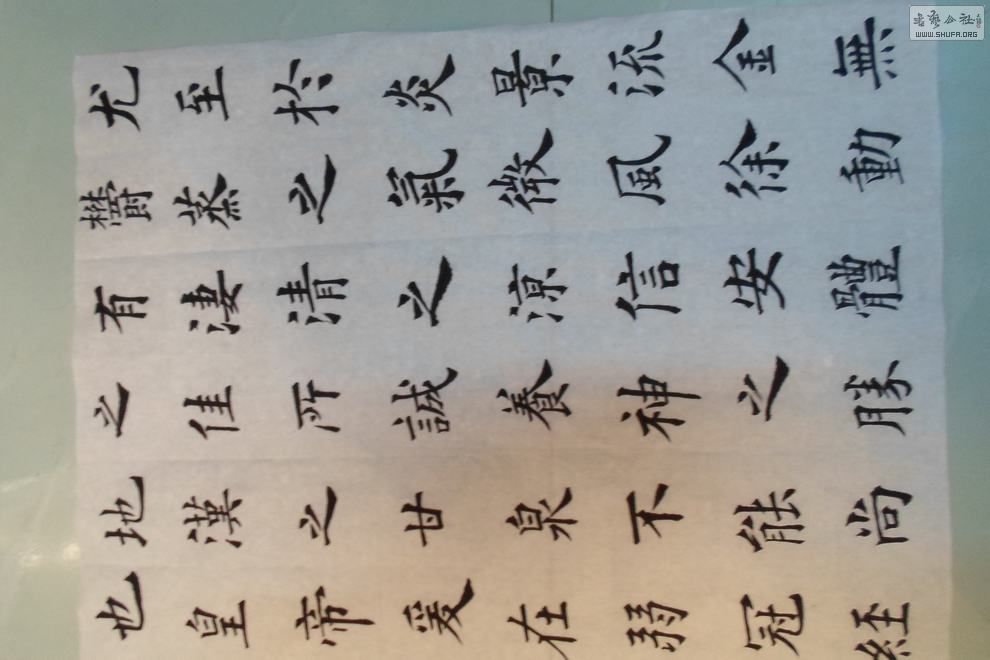 尤至於炎景流金無
欝蒸之氣微風徐動
有淒清之涼信安體
之佳所誠養神之勝
地漢之甘泉不能尚
也皇帝爰在弱冠經
書藝公社
WWW.SHUFA.ORG